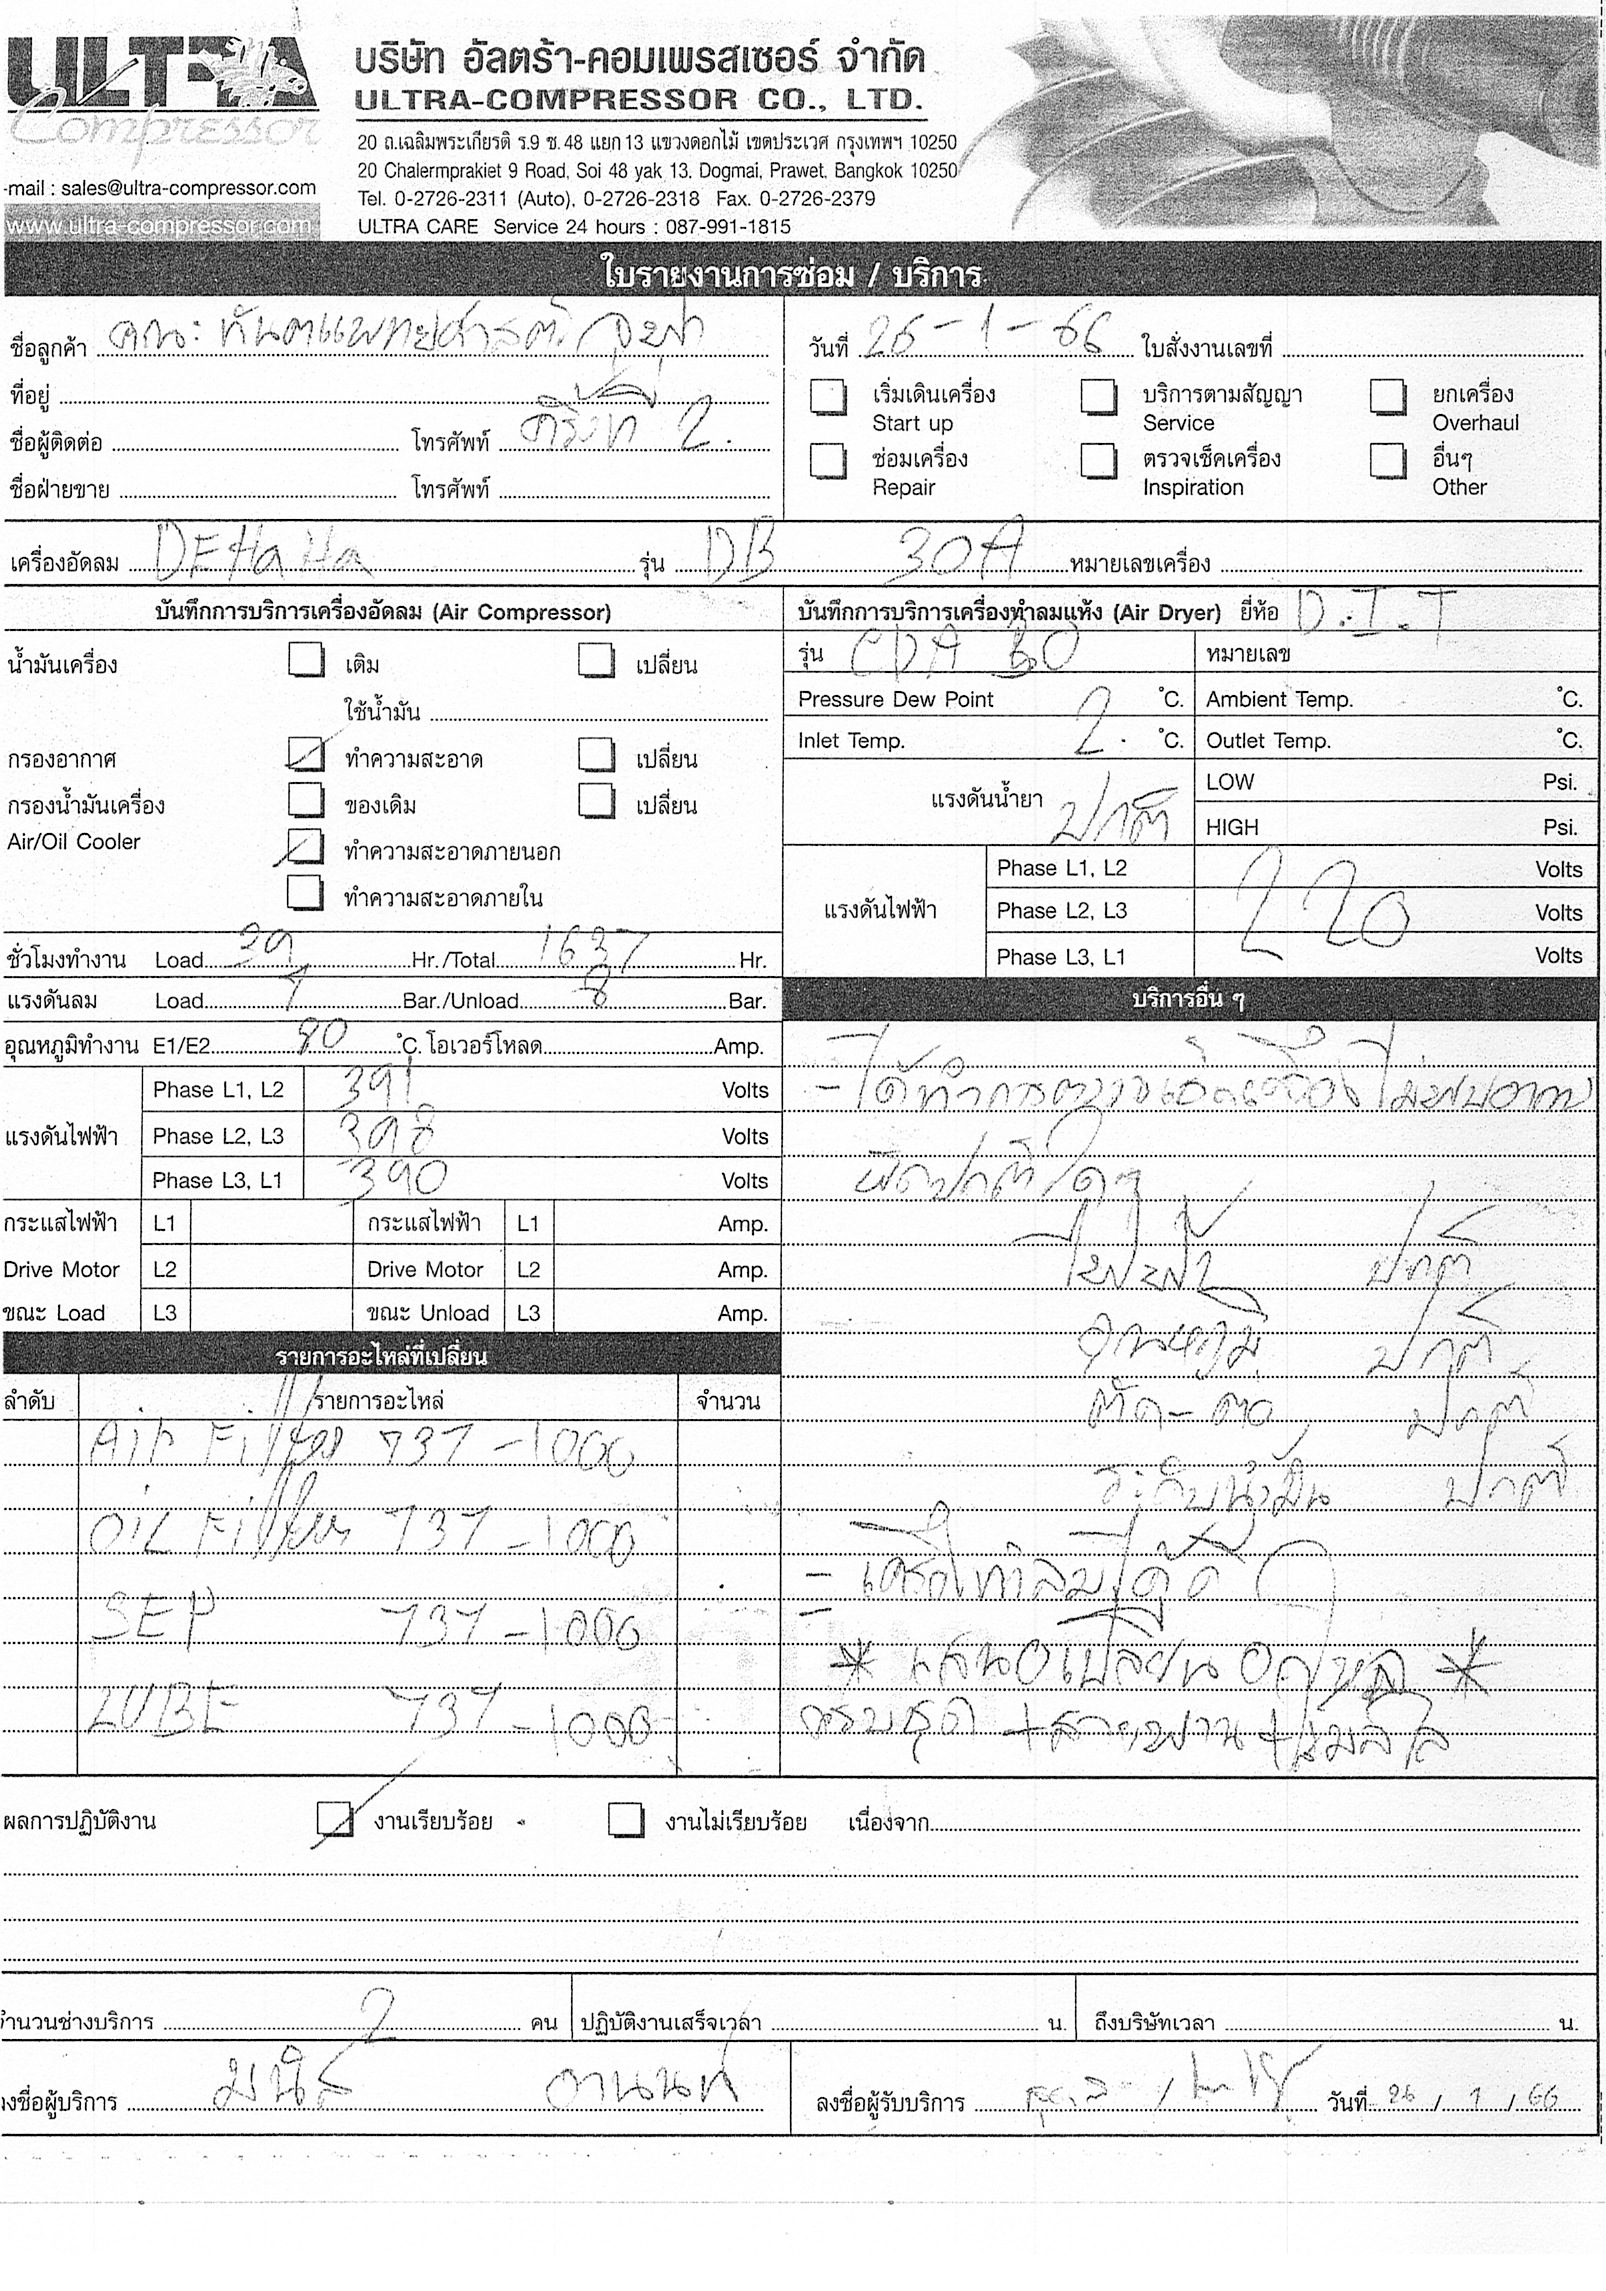 ULTRA
Compressor
-mail : sales@ultra-compressor.com
www.ultra-compressor.com
บริษัท อัลตร้า-คอมเพรสเซอร์ จำกัด
ULTRA-COMPRESSOR CO., LTD.
20 ถ.เฉลิมพระเกียรติ ร.9 ซ.48 แยก 13 แขวงดอกไม้ เขตประเวศ กรุงเทพฯ 10250
20 Chalermprakiet 9 Road, Soi 48 yak 13, Dogmai, Prawet, Bangkok 10250
Tel. 0-2726-2311 (Auto), 0-2726-2318 Fax. 0-2726-2379
ULTRA CARE Service 24 hours : 087-991-1815
ใบรายงานการซ่อม / บริการ
ชื่อลูกค้า คณะทันตแพทยศาสตร์ จุฬา
ที่อยู่
ชื่อผู้ติดต่อ โทรศัพท์ ครั้งที่ 2.
ชื่อฝ่ายขาย โทรศัพท์
วันที่ 26-1-66 ใบสั่งงานเลขที่
เริ่มเดินเครื่อง บริการตามสัญญา ยกเครื่อง
Start up Service Overhaul
ซ่อมเครื่อง ตรวจเช็คเครื่อง อื่นๆ
Repair Inspiration Other
เครื่องอัดลม รุ่น DB 30A หมายเลขเครื่อง
บันทึกการบริการเครื่องอัดลม (Air Compressor)
น้ำมันเครื่อง เติม เปลี่ยน
ใช้น้ำมัน
กรองอากาศ ทำความสะอาด เปลี่ยน
กรองน้ำมันเครื่อง ของเดิม เปลี่ยน
Air/Oil Cooler ทำความสะอาดภายนอก
ทำความสะอาดภายใน
ชั่วโมงทำงาน Load 39 Hr./Total 1637 Hr.
แรงดันลม Load 7 Bar./Unload 8 Bar.
อุณหภูมิทำงาน E1/E2 80 °C. โอเวอร์โหลด Amp.
แรงดันไฟฟ้า
Phase L1, L2 391 Volts
Phase L2, L3 398 Volts
Phase L3, L1 390 Volts
กระแสไฟฟ้า L1 กระแสไฟฟ้า L1 Amp.
Drive Motor L2 Drive Motor L2 Amp.
ขณะ Load L3 ขณะ Unload L3 Amp.
รายการอะไหล่ที่เปลี่ยน
ลำดับ รายการอะไหล่ จำนวน
Air Filter 737-1000
OIL Filter 737-1000
SEP 737-1000
LUBE 737-1000
บันทึกการบริการเครื่องทำลมแห้ง (Air Dryer) ยี่ห้อ D.I.T
รุ่น CDA 30 หมายเลข
Pressure Dew Point 2 °C. Ambient Temp. °C.
Inlet Temp. °C. Outlet Temp. °C.
แรงดันน้ำยา ปกติ LOW Psi.
HIGH Psi.
แรงดันไฟฟ้า 220
Phase L1, L2 Volts
Phase L2, L3 Volts
Phase L3, L1 Volts
บริการอื่น ๆ
- ได้ทำการตรวจเช็คเครื่องไม่พบอาการ
ผิดปกติใดๆ
ไฟฟ้า ปกติ
อุณหภูมิ ปกติ
ตัด-ต่อ ปกติ
ระดับน้ำมัน ปกติ
- เครื่องทำลมได้ดี
* เสนอเปลี่ยนอะไหล่ *
ครบชุด + สายพาน +
ผลการปฏิบัติงาน งานเรียบร้อย งานไม่เรียบร้อย เนื่องจาก
จำนวนช่างบริการ 2 คน ปฏิบัติงานเสร็จเวลา น. ถึงบริษัทเวลา น.
ลงชื่อผู้บริการ อานนท์ ลงชื่อผู้รับบริการ วันที่ 26 / 1 / 66